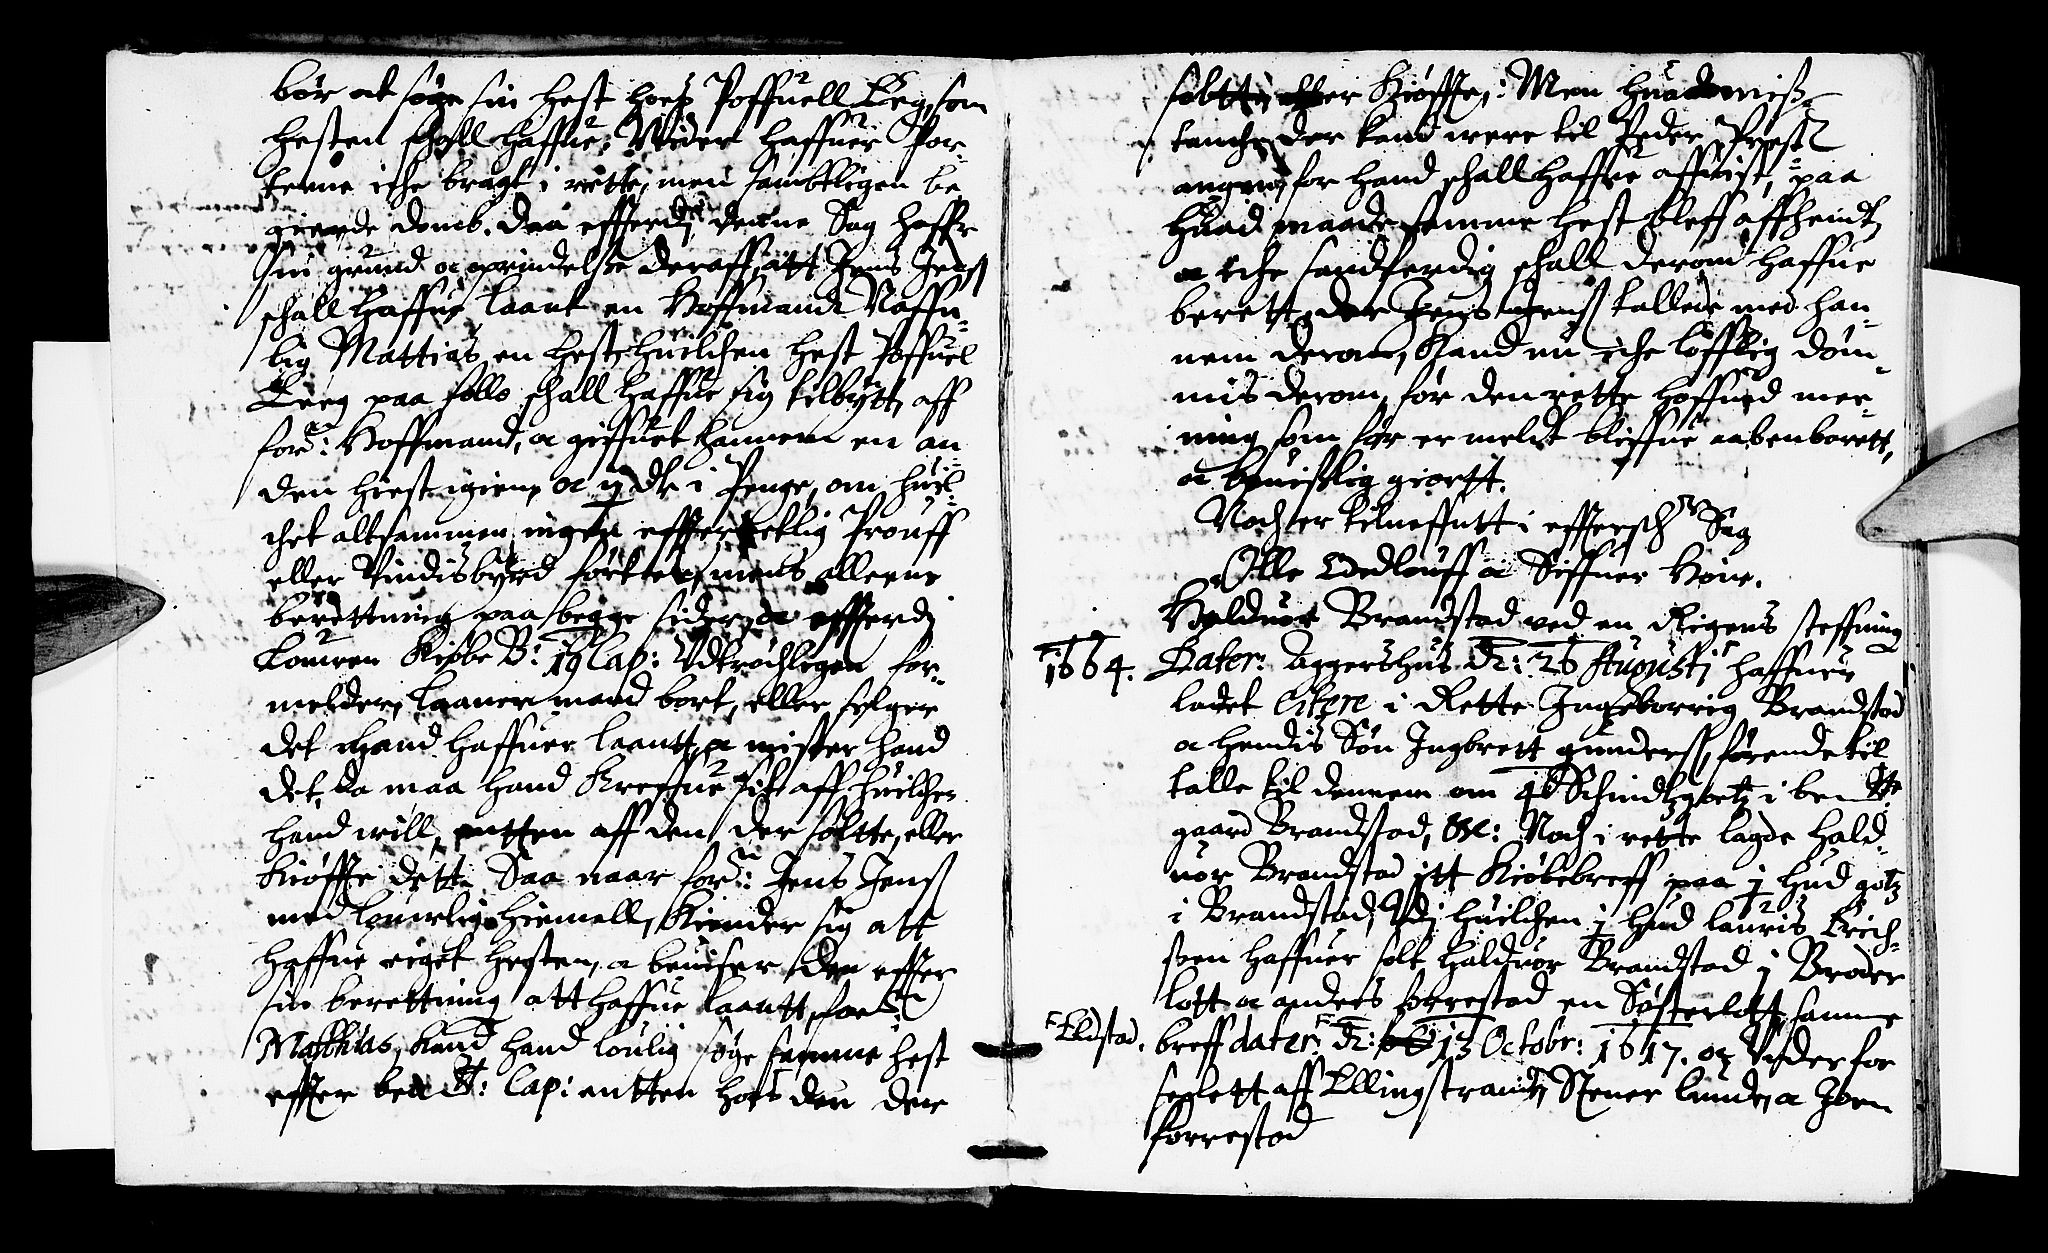 bör at söge sin Hest hoes Poffuell Leeg, som
Hesten schall haffue; Videre haffuer Par-
terne iche bragt i rette, men sambtligen be
gierede domb. Daa effterdj denne Sag haffr
sin grund oc oprindelse deraff, att Jens Jenß
schall haffue laant en Hoffmand Naffn-
lig Mattias en Hest, huilchen Hest Poffuel
Leeg paa follo schall haffue sig tilbytt, aff
ford: Hoffmand, oc giffuet hannem en an
den hest igien, oc dlr i Penge, om huil-
chet altsammen ingen effterrettlig Prouff
eller Vindisbyrd förtes, mens alleene
berettning paa begge sider, oc effterdj
Louwen Kiöbe B: 19 Cap: Udtröchligen for-
melder, laaner mand bort, eller selger
det mand haffuer laantt, oc mister hand
det, da maa hand Kreffue sit aff huilchen
hand will, entten aff den der sölte, eller
Kiöffte dett. Saa naar ford: Jens Jenß
med louwlig Hiemell, Kiender sig att
haffue eiget Hesten, oc beuiser den effter
sin berettning att haffue laantt, ford:
Matthias, kand hand loulig söge samme hest
effter bemt: Cap: entten hoes den der
soltte, eller Kiöffte,: Men huad miß-
tanche der kand were til Peder Prestß
angaaend, for hand schall haffue affuist, paa
Huad maade samme Hest bleff affhendt
oc iche sandferdig schall derom haffue
berett, der Jens Jenß tallede med han-
nem derom, kand nu iche löfflig döm-
mis derom, för den rette hoffued mee-
ning som för er meldt bliffue aabenbarett,
oc beuislig giortt.
Noch er tilneffntt i effterschr Sag
Olle Ededlouff oc Siffuer Höne.
Halduor Brandstad ved en Rigens steffning
1664. Dater: Aggershus dr: 26 Augustj haffuer
ladet Citere i Rette Ingeborrig Brandstad
oc hendis Sön Ingbrett gunderß, förende til
talle til dennem om 4 Schindtz goetz i bemte
gaard Brandstad, etc: Noch i rette lagde Hald-
uor Brandstad itt Kiöbebreff paa j Hud gotz
i Brandstad, Udj huilchen j hud lauris Erich-
sen haffuer solt Halduor Brandstad j Broder
lott oc anders forrestad en Söster lott, samme
F Eldstad. breff dater: F dr: 13 Octobr: 1617. oc Under for
seglett aff Ellingstrand, Stener lunde, oc Joen
forrestad